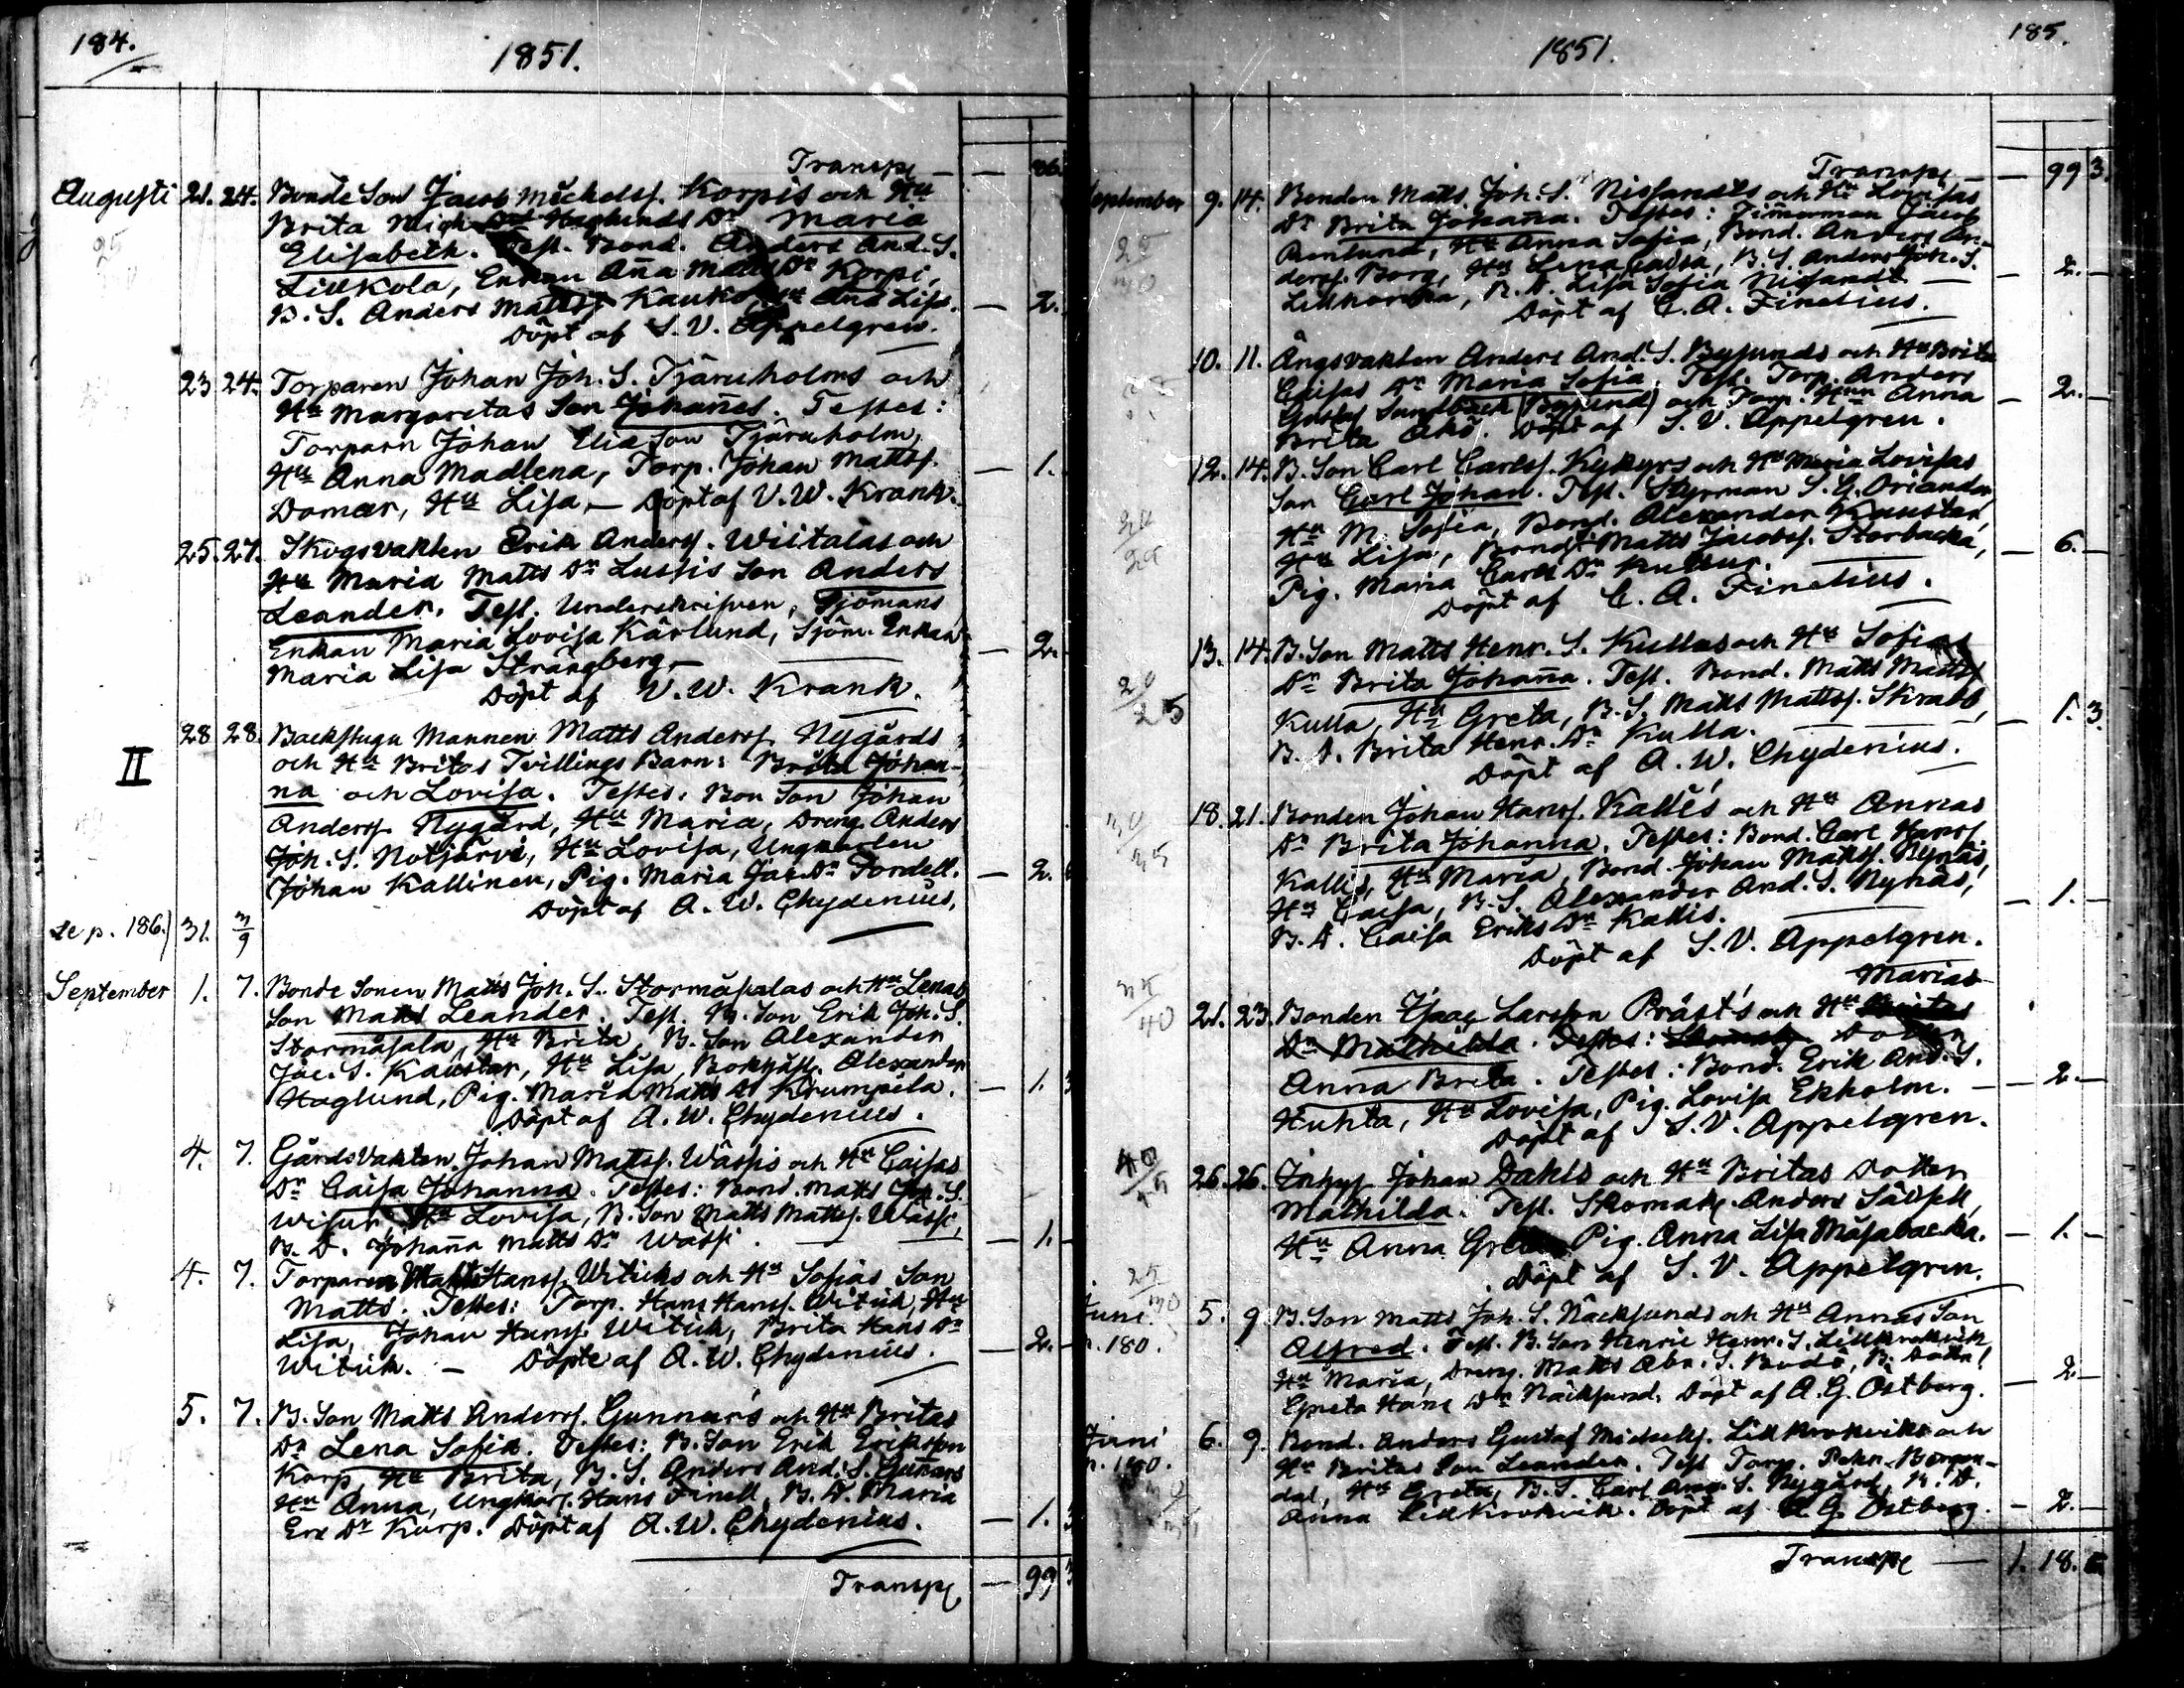 184.
1851.
Transp — — 86.
Augusti 21. 24. Bonde Son Jacob Mickelss. Korpis och Hu
Brita Mich Dr Haglunds Dr Maria
Elisabeth. Test. Bond. Anders And. S.
Lillkola, Enkan Aña Matts Dr Korpi,
B. S. Anders Mattss Kauko, Hu Lisa. — 2.
Döpt af S. V. Appelgren.
23 24. Torparen Johan Joh. S. Tjäruholms och
Hu Margaretas Son Johañes. Testes:
Torparn Johan Elia Son Tjäruholm,
Hu Anna Madlena, Torp. Johan Mattss. — 1.
Domar, Hu Lisa, — Döpt af V. W. Krank.
25. 27. Skogsvakten Erik Anderss. Wiitalas och
Hu Maria Matts Dr Lussis Son Anders
Leander. Test. Underskrifven, Sjömans
Enkan Maria Lovisa Kärlund, Sjöm. Enkan — 2.
Maria Lisa Strangberg. —
Döpt af V. W. Krank.
28 28. Backstugu Mannen Matts Anderss Nygårds
II och Hu Britas Tvillings Barn: Brita Johan-
na och Lovisa. Testes: Bon Son Johan
Anderss. Nygård, Hu Maria, Dreng. Anders
Joh. S. Notjärvi, Hu Lovisa, Ungkarlen
Johan Kallinen, Pig. Maria Jac. Dr Fordell. — 2.
Döpt af A. W. Chydenius.
se p. 186.) 31. 3/9
September 1. 7. Bonde Sonen Matts Joh. S. Stormåsalas och Hu Lenas
Son Matts Leander. Test. B. Son Erik Joh. S.
Stormåsala, Hu Brita, B. Son Alexander
Jac. S. Kaustar, Hu Lisa, Alexander
Haglund, Pig. Maria Matts Dr Krumpila. — 1.
Döpt af A. W. Chydenius.
4. 7. Gårdsvakten Johan Mattss. Wassis och Hu Caisas
Dr Caisa Johanna. Testes: Bond. Matts Joh. S.
Wisur, Hu Lovisa, B. Son Matts Mattss. Wassi,
B. D. Johaña Matts Dr Wassi. — 1. —
4. 7. Torparen Matts Hanss. Wituks och Hu Sofias Son
Matts. Testes: Torp. Hans Hanss. Wituk, Hu
Lisa, Johan Hanss. Wituk, Brita Hans Dr
Wituk. — Döpte af A. W. Chydenius. — 2. —
5. 7. B. Son Matts Anderss. Gunnars och Hu Britas
Dr Lena Sofia. Testes: B. Son Erik Eriksson
Korp, Hu Brita, B. S. Anders And. S. Guñars
Hu Anna, Ungkarl. Hans Finell, B. D. Maria
Eric Dr Korp. Döpt af A. W. Chydenius. — 1.
Transp — 99
1851.
185.
Transp — — 99 3.
September 9. 14. Bonden Matts Joh. S. Nissandts och Hu Lovisas
Dr Brita Johaña. Testes: Timmerman Jacob
Hu Anna Sofia, Bond. Anders An-
derss. Borg, Hu Lena Caisa, B. S. Anders Joh. S. — 2. —
B. D. Lisa Sofia Nissandt —
Döpt af C. A. Finelius.
10. 11. Ängsvakten Anders And. S. Bysunds och Hu Brita
Caisas Dr Maria Sofia. Test. Torp. Anders
Gustaf Sundbäck (Bysund) och Torp. Hun Anna — 2. —
Brita Åkö. Döpt af S. V. Appelgren.
12. 14. B. Son Carl Carlss. Kykyrs och Hu Maria Lovisas
Son Carl Johan. Test. Styrman S. G. Oriander,
Hu M. Sofia, Bond. Alexander Kaustar,
Hu Lisa, Matts Jacobss. Storbacka, — 6. —
Pig. Maria Carls Dr
Döpt af C. A. Finelius.
13. 14. B. Son Matts Henr. S. Kullas och Hu Sofias
Dr Brita Johaña. Test. Bond. Matts Mattss
Kulla, Hu Greta, B. S. Matts Mattss. Skrabb, — 1. 3.
B. D. Brita Henr. Dr Kulla.
Döpt af A. W. Chydenius.
18. 21. Bonden Johan Hanss. Kallis och Hu Annas
Dr Brita Johanna. Testes: Bond. Carl Hanss.
Kallis, Hu Maria, Bond. Johan Mattss. Nynäs,
Hu Caisa, B. S. Alexander And. S. Nynäs, — 1. —
B. D. Caisa Eriks Dr Kallis.
Döpt af S. V. Appelgren.
Marias
21. 23. Bonden Isaac Larsson Präst's och Hu Britas
Dr Mathilda. Testes: Skomak Dotter
Anna Brita. Testes: Bond. Erik And. S.
Huhta, Hu Lovisa, Pig. Lovisa Ekholm. — 2. —
Döpt af S. V. Appelgren.
26. 26. Inhys Johan Dahls och Hu Britas Dotter
Mathilda. Test. Skomak. Anders
Hu Anna Greta Pig. Anna Lisa Måsabacka. — 1. —
Döpt af S. V. Appelgren.
Juni p. 180. 5. 9 B. Son Matts Joh. S. Näcksunds och Hu Annas Son
Alfred. Test. B. Son Henric Henr. S. Lillkrokvik
Hu Maria, Dreng. Matts Abr. S. Bodö, B. Dottr. — 2. —
Greta Hans Dr Näcksund. Döpt af A. G. Östberg.
Juni p. 180. 6. 9. Bond. Anders Gustaf Mickelss. Lillkrokviks och
Hu Britas Son Leander. Test Torp. Petr. Borgon-
dal, Hu Greta, B. S. Carl And. S. Nygård, B. D.
Anna Lillkrokvik. Döpt af A. G. Östberg. — 2. —
Transp — 1. 18.